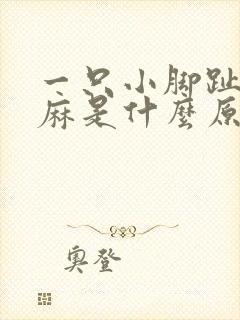 一只小脚趾
麻是什麽原
奥登